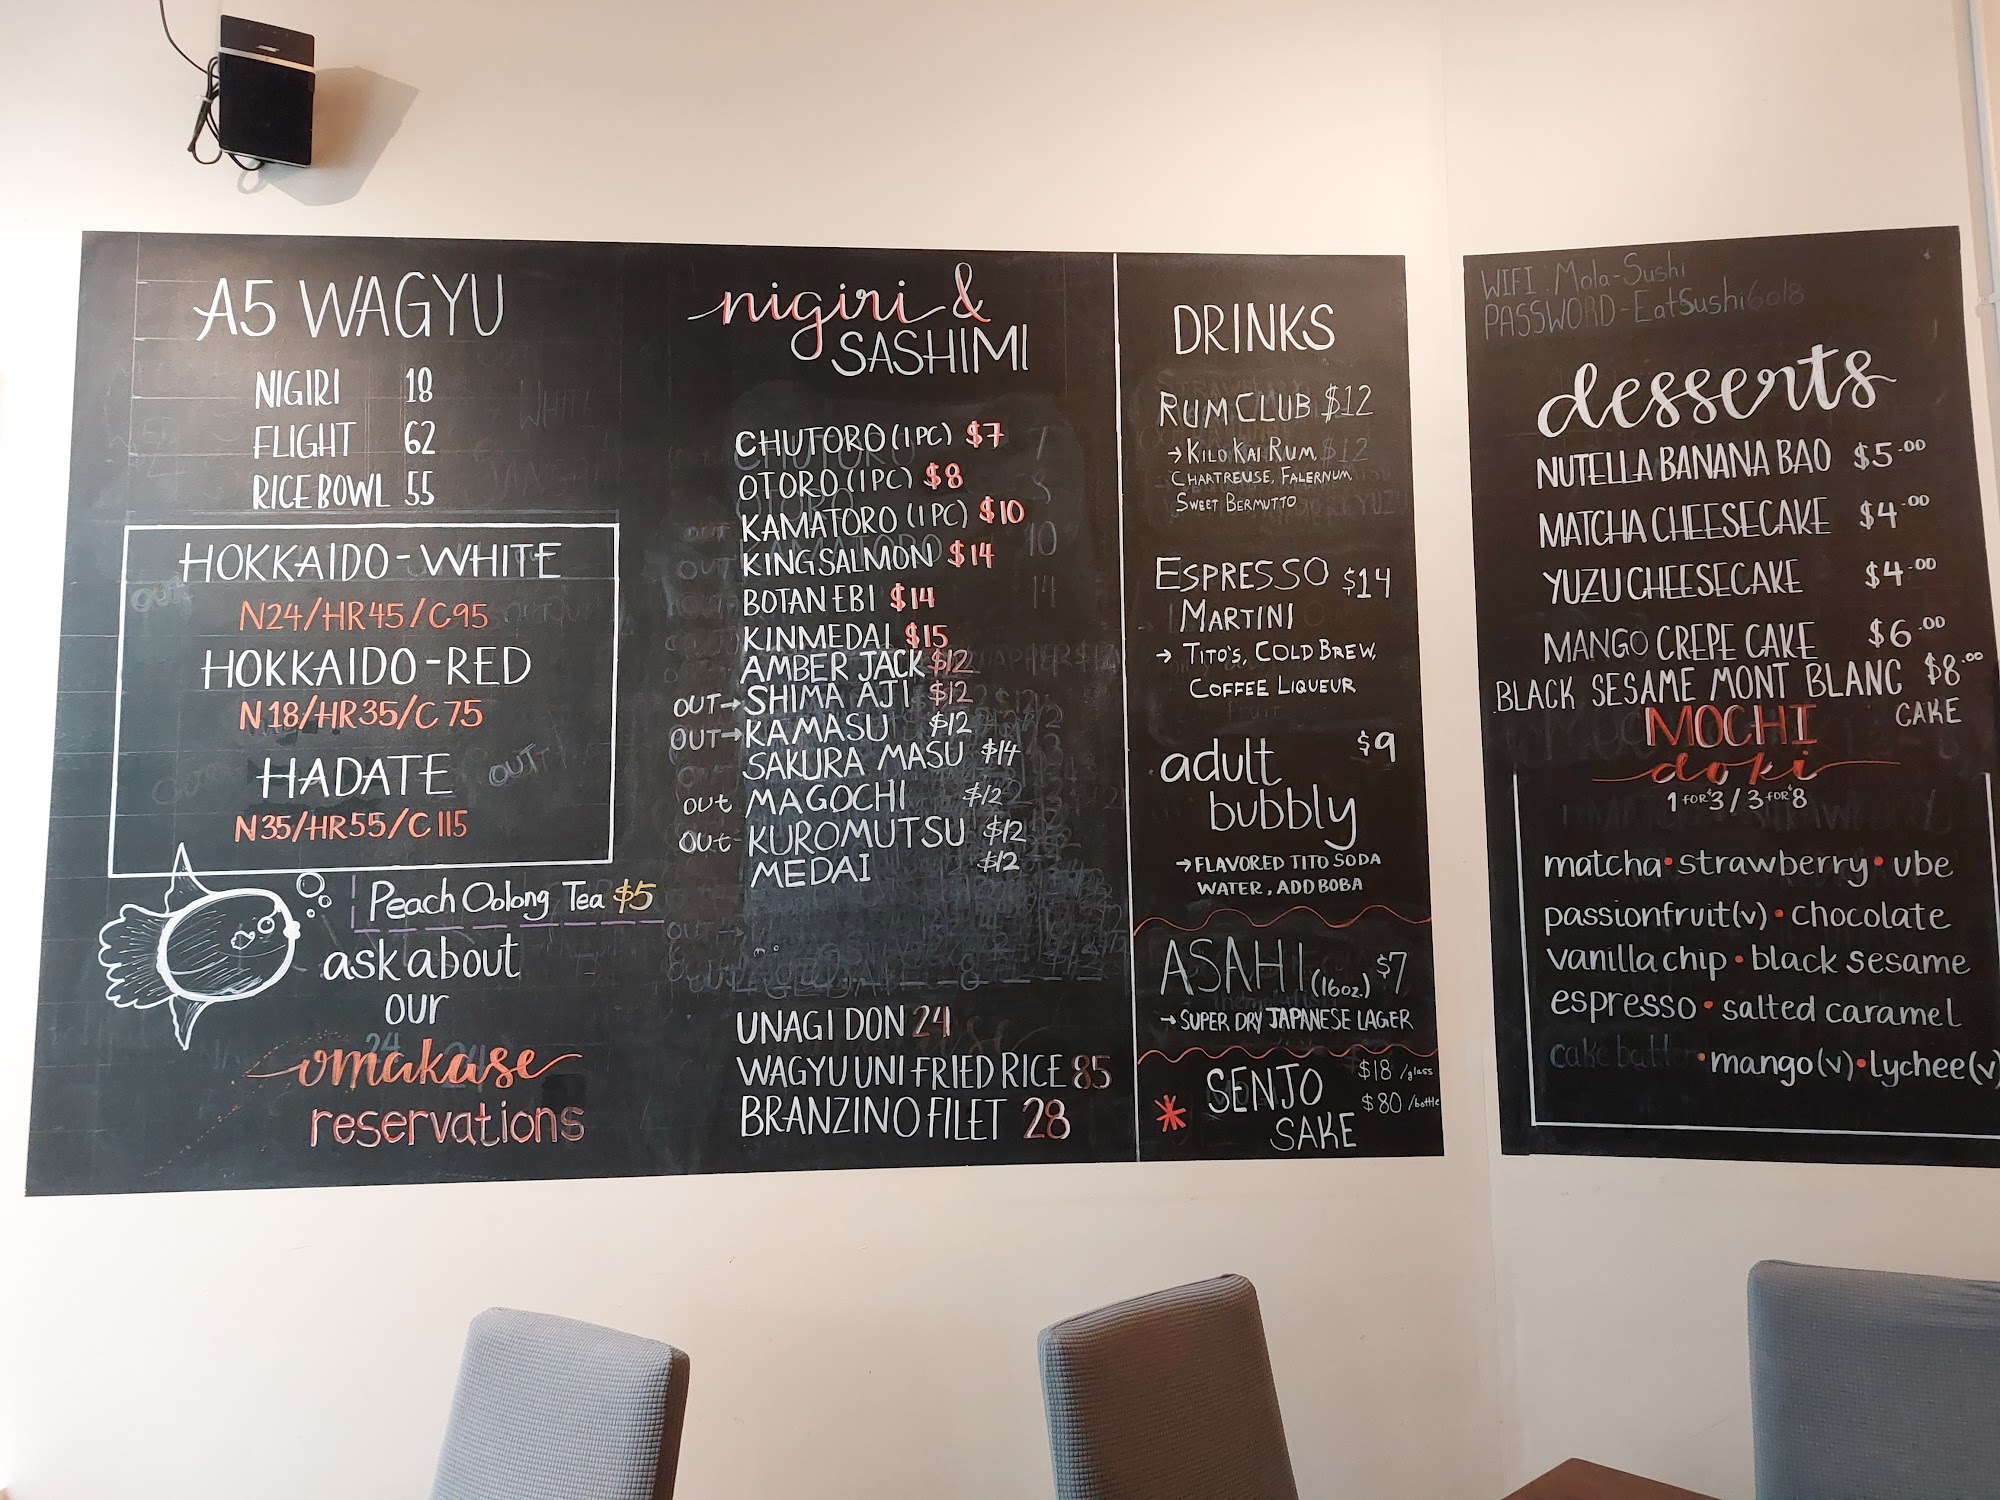 A5 WAGYU
NIGIRI 18
FLIGHT 62
RICE BOWL 55
HOKKAIDO-WHITE
N24/HR45/C95
HOKKAIDO-RED
N18/HR35/C75
HADATE
N35/HR55/C115
OUT
Peach Oolong Tea $5
ask about
our
omakase
reservations
nigiri &
SASHIMI
CHUTORO (1PC) $7
OTORO (1PC) $8
KAMATORO (1PC) $10
KING SALMON $14
BOTAN EBI $14
KINMEDAI $15
AMBER JACK $12
OUT→SHIMA AJI $12
OUT→KAMASU $12
SAKURA MASU $14
OUT MAGOCHI $12
OUT-KUROMUTSU $12
MEDAI $12
UNAGI DON 24
WAGYU UNI FRIED RICE 85
BRANZINO FILET 28
DRINKS
RUM CLUB $12
→KILO KAI RUM,
CHARTREUSE, FALERNUM,
SWEET BERMUTTO
ESPRESSO $14
MARTINI
→ TITO'S, COLD BREW,
COFFEE LIQUEUR
adult $9
bubbly
→FLAVORED TITO SODA
WATER, ADD BOBA
ASAHI (16oz.) $7
→SUPER DRY JAPANESE LAGER
SENJO $18/glass
SAKE $80/bottle
WIFI: Mola-Sushi
PASSWORD-EatSushi6018
desserts
NUTELLA BANANA BAO $5.00
MATCHA CHEESECAKE $4.00
YUZU CHEESECAKE $4.00
MANGO CREPE CAKE $6.00
BLACK SESAME MONT BLANC $8.00
CAKE
MOCHI
doki
1 FOR $3 / 3 FOR $8
matcha • strawberry • ube
passionfruit(v) • chocolate
vanilla chip • black sesame
espresso • salted caramel
• mango(v) • lychee(v)